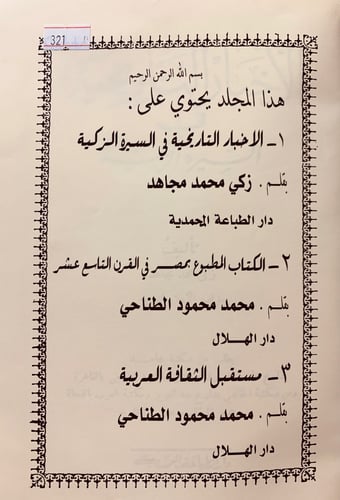 321
بسم الله الرحمن الرحيم
هذا المجلد يحتوي على :
١ـ الأخبار التاريخية في السيرة الزكية
بقلم . زكي محمد مجاهد
دار الطباعة المحمدية
٢ـ الكتاب المطبوع بمصر في القرن التاسع عشر
بقلم . محمد محمود الطناحي
دار الهلال
٣ـ مستقبل الثقافة العربية
بقلم . محمد محمود الطناحي
دار الهلال